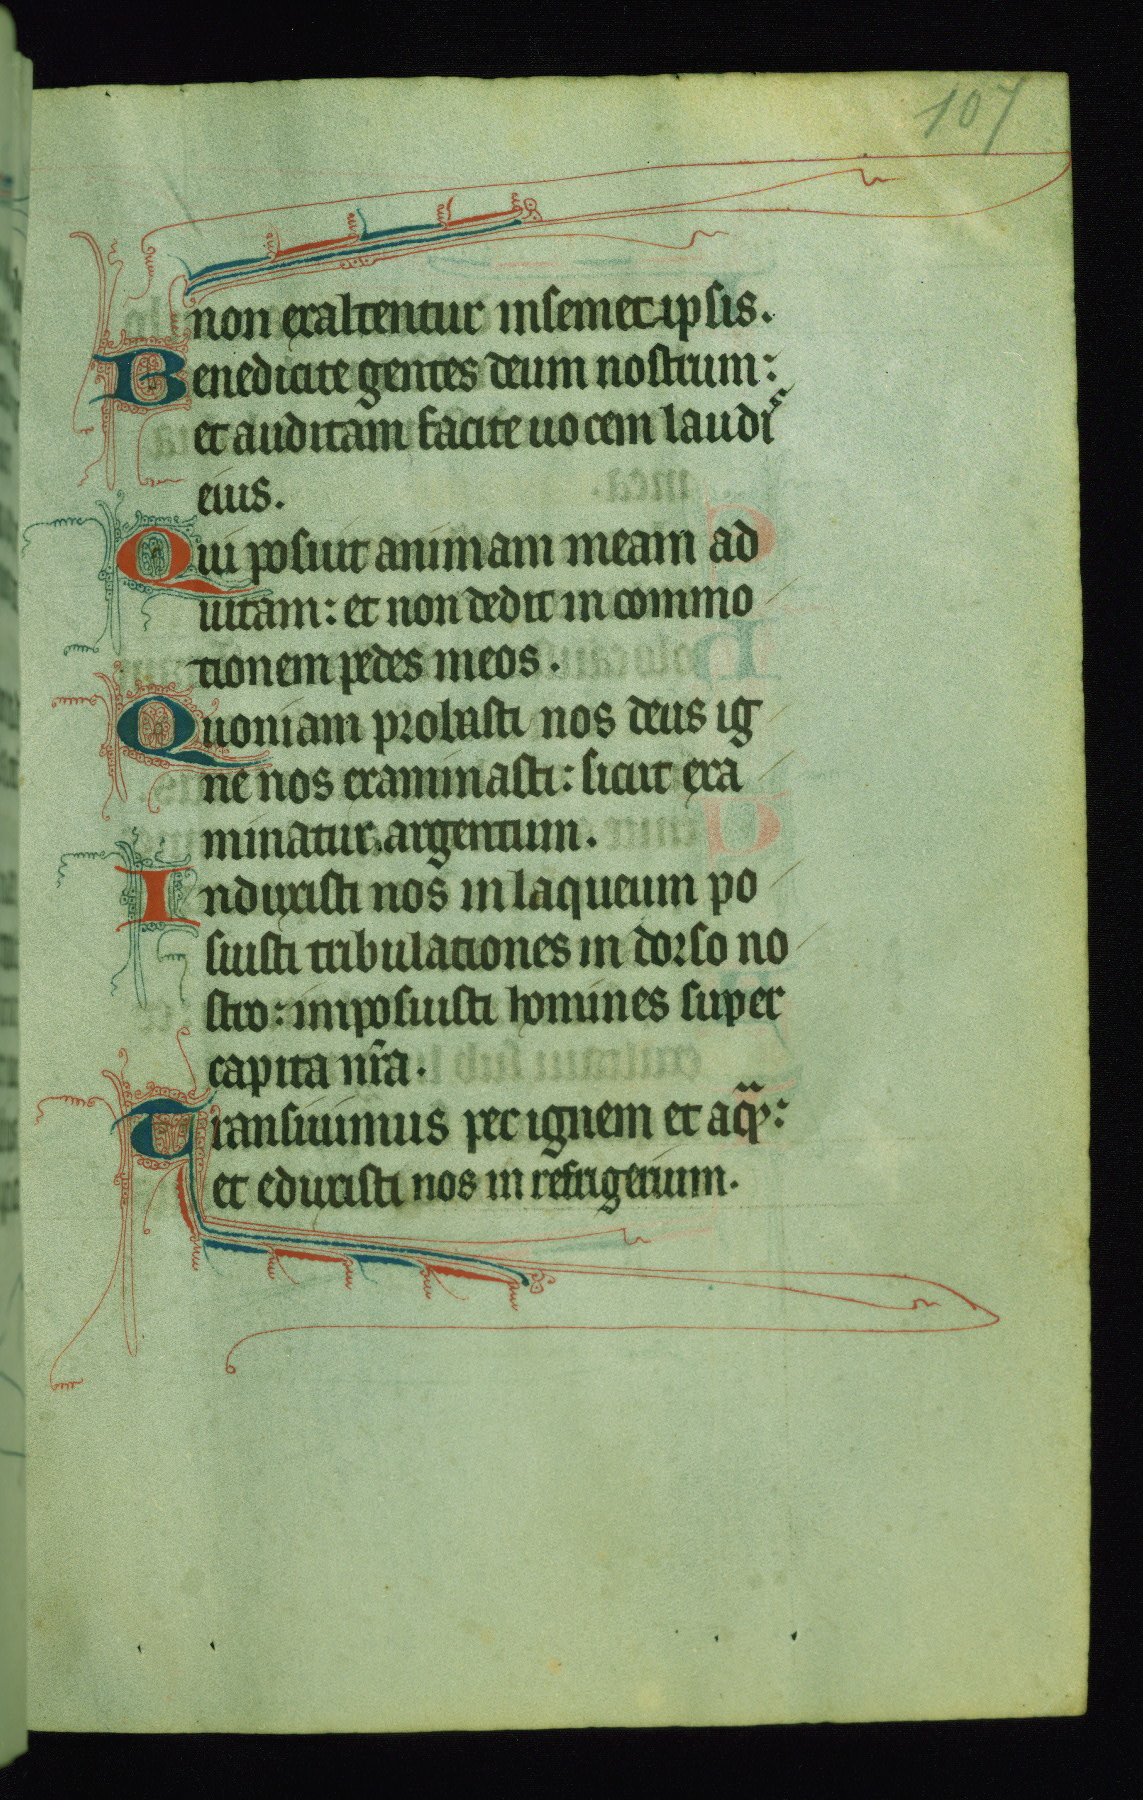 107
non exaltentur in semet ipsis.
Benedicite gentes deum nostrum:
et auditam facite uocem laudis
eius.
Qui posuit animam meam ad
uitam: et non dedit in commo
tionem pedes meos.
Quoniam probasti nos deus ig
ne nos examinasti: sicut exa
minatur argentum.
Induxisti nos in laqueum po
suisti tribulationes in dorso no
stro: imposuisti homines super
capita nr̄a.
Transiuimus per ignem et aq̄̄:
et eduxisti nos in refrigerium.